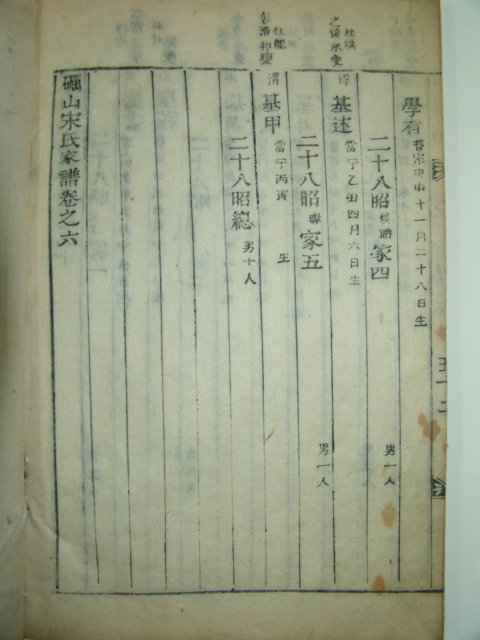 學有 哲宗庚申十一月二十八日生
二十八昭 家四 男一人
基述 當宁乙丑四月六日生
二十八昭 家五 男一人
基甲 當宁丙寅 生
二十八昭總 男十人
礪山宋氏家譜卷之六